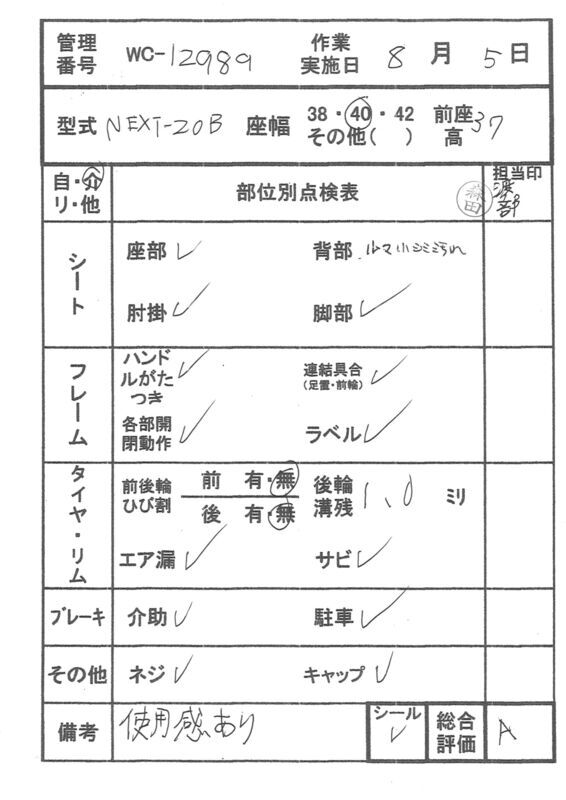 管理番号 WC-12989 作業実施日 8月5日
型式 NEXT-20B 座幅 38・40・42 その他( ) 前座高 37
自・介
リ・他
部位別点検表
担当印
森田
渡部
シート
座部 ✓ 背部 シミ汚れ
肘掛 ✓ 脚部 ✓
フレーム
ハンドルがたつき ✓ 連結具合(足置・前輪) ✓
各部開閉動作 ✓ ラベル ✓
タイヤ・リム
前後輪ひび割 前 有・無 後輪溝残 1.0 ミリ
後 有・無
エア漏 ✓ サビ ✓
ブレーキ 介助 ✓ 駐車 ✓
その他 ネジ ✓ キャップ ✓
備考 使用感あり シール ✓ 総合評価 A